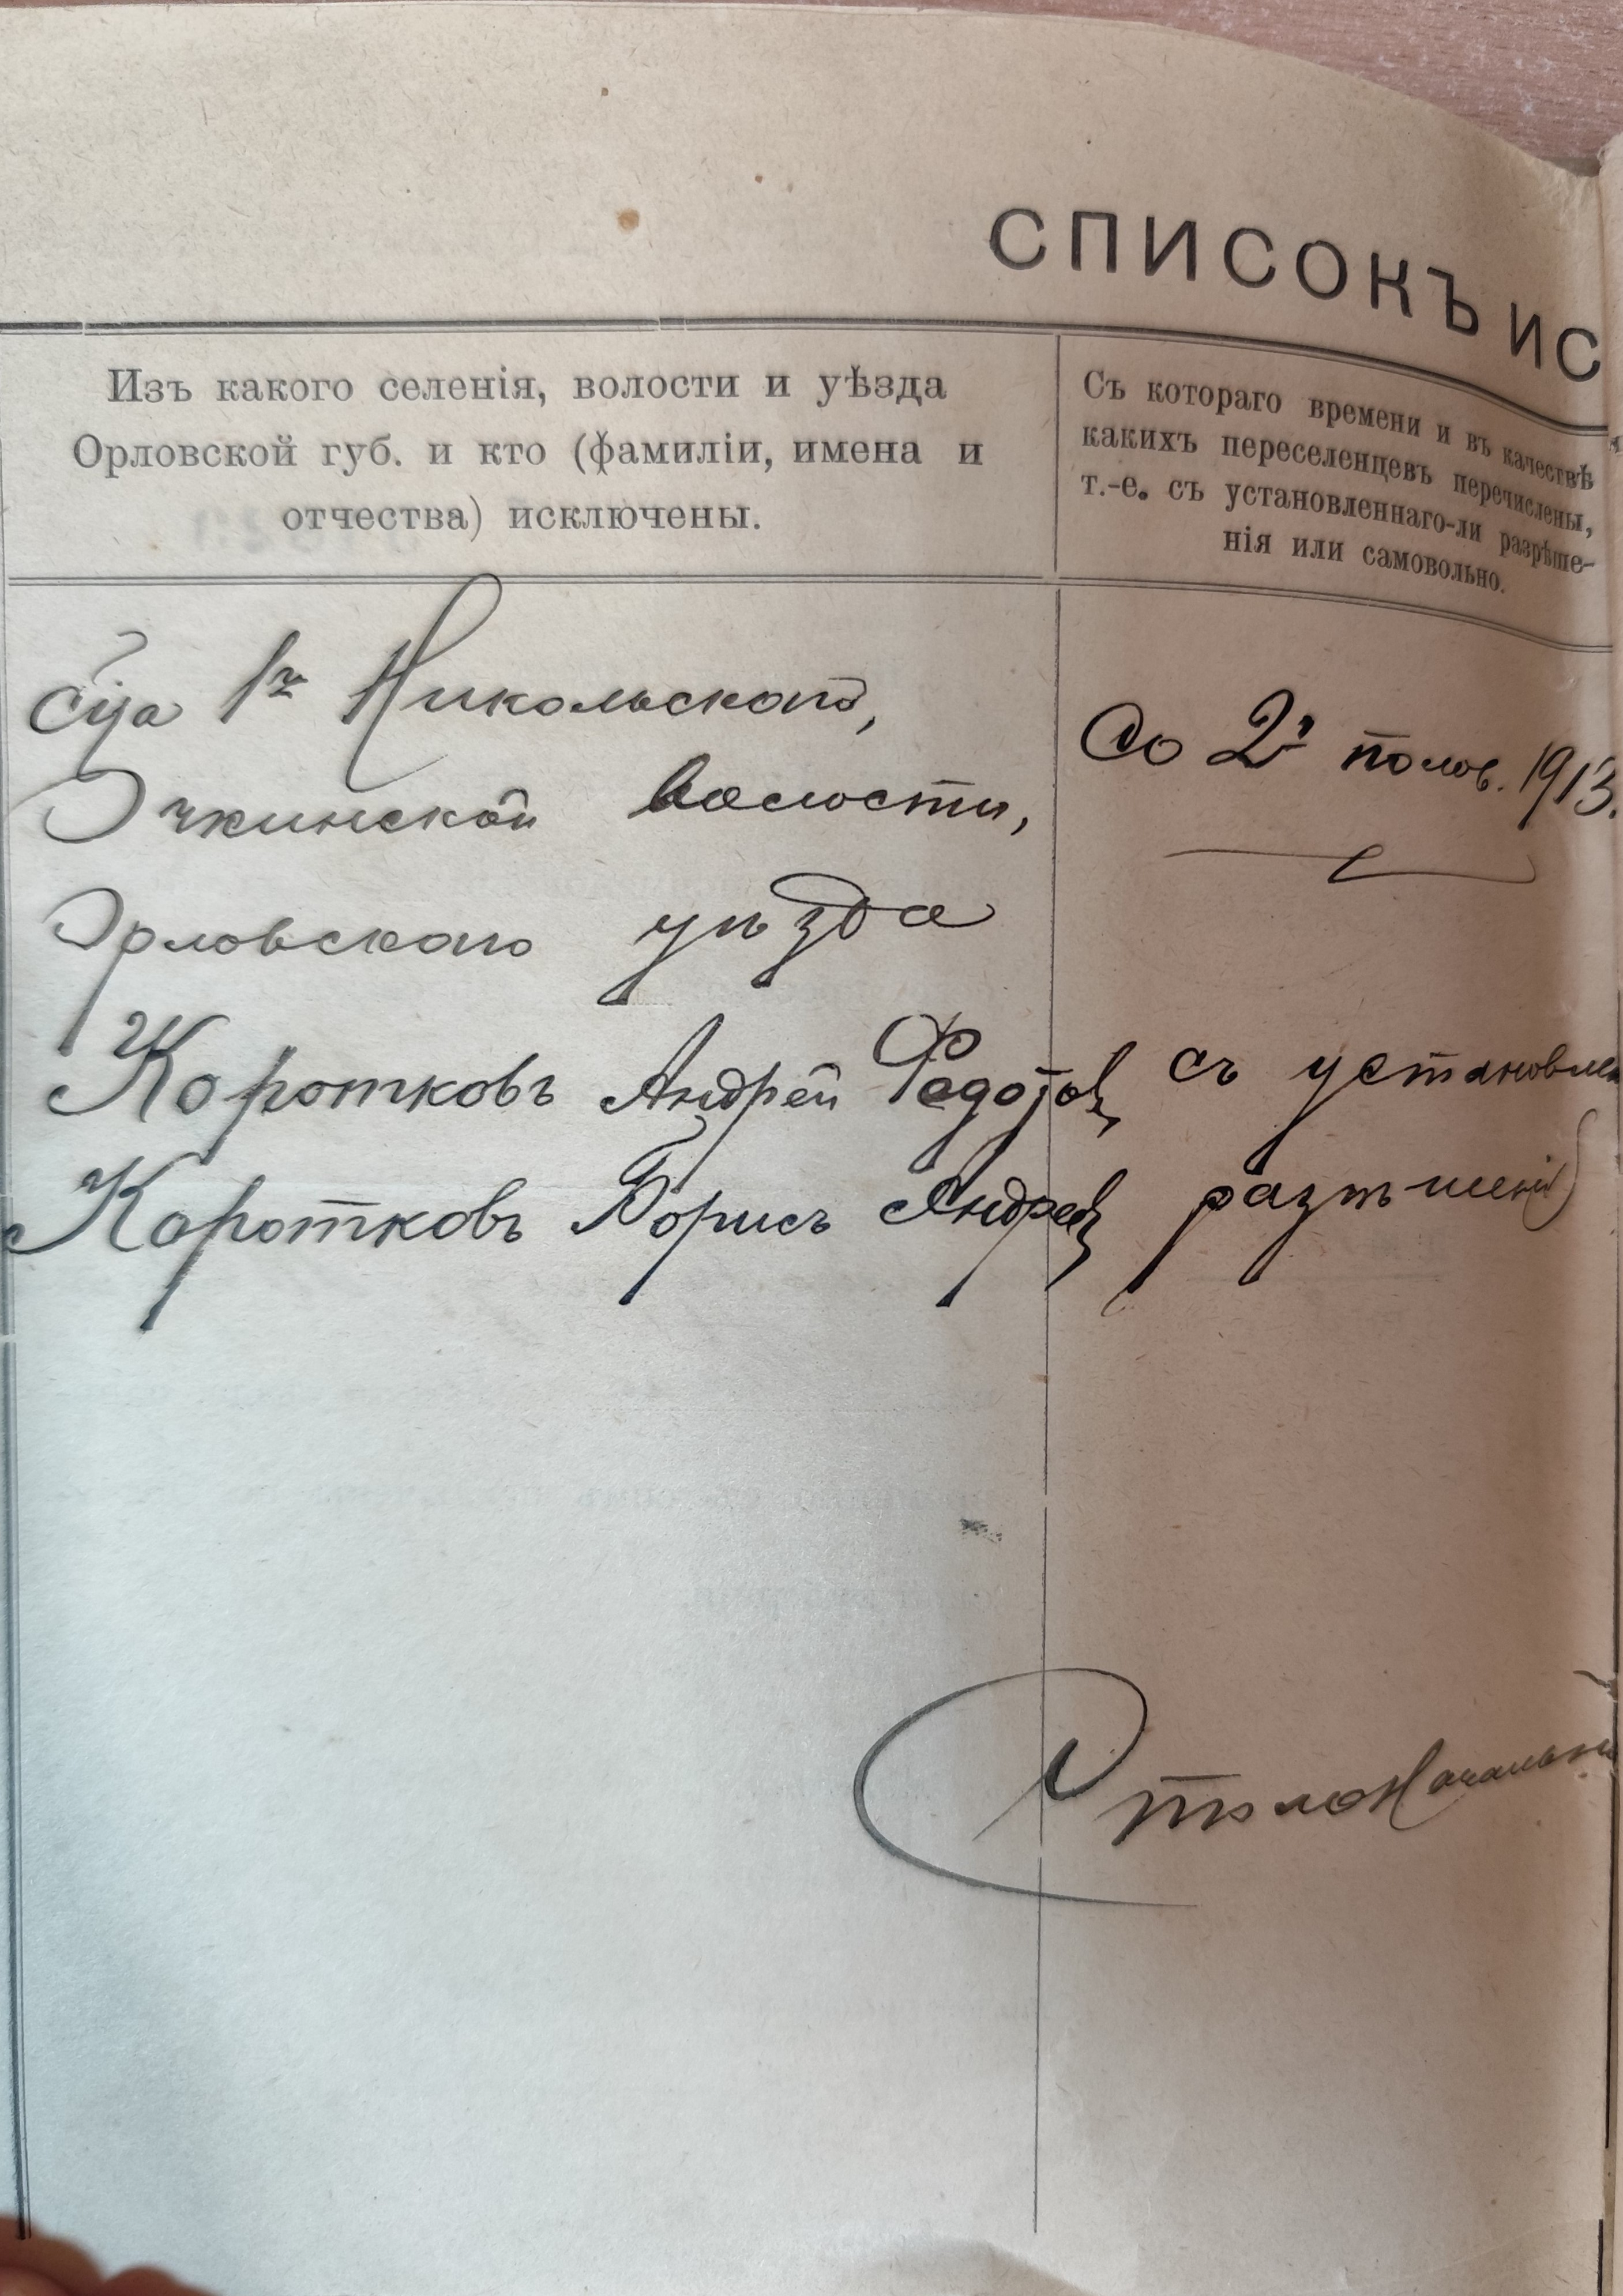 СПИСОКЪ ИС
Изъ какого селенія, волости и уѣзда
Орловской губ. и кто (фамиліи, имена и
отчества) исключены.
Съ котораго времени и въ качествѣ
какихъ переселенцевъ перечислены,
т.-е. съ установленнаго-ли разрѣше-
нія или самовольно.
1го Никольскаго,
Очкинской волости,
Орловскаго уѣзда
Коротковъ Андрей Федотов
Коротковъ Борисъ Андреев
Со 2й полов. 1913.
съ установлен
разрѣшенія
Столоначальни